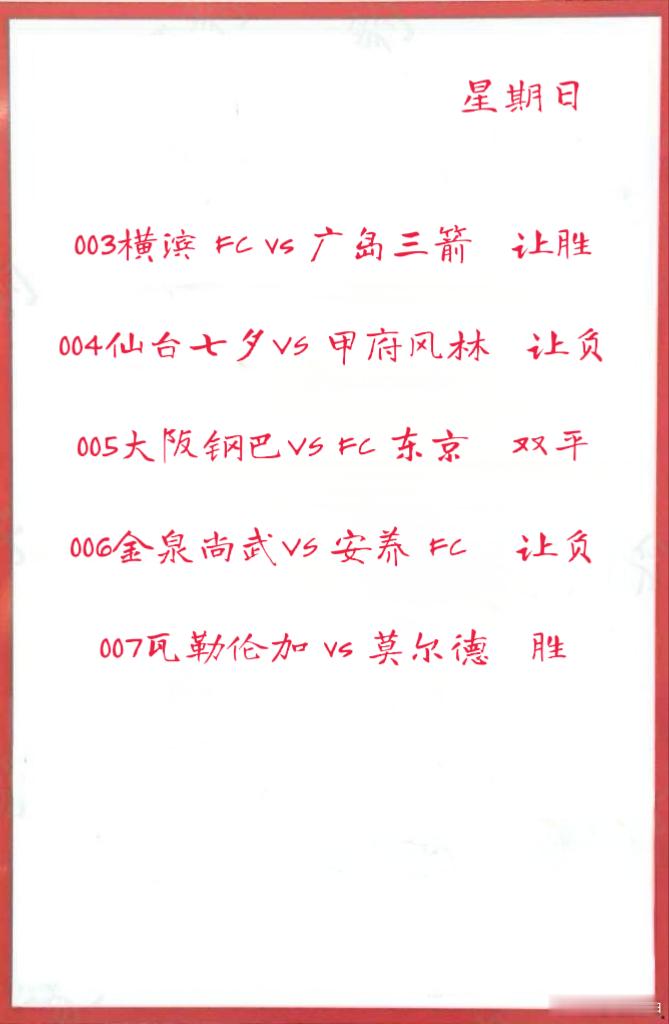 星期日
003横滨 FC vs 广岛三箭 让胜
004仙台七夕vs 甲府风林 让负
005大阪钢巴vs FC 东京 双平
006金泉尚武vs 安养 FC 让负
007瓦勒伦加 vs 莫尔德 胜